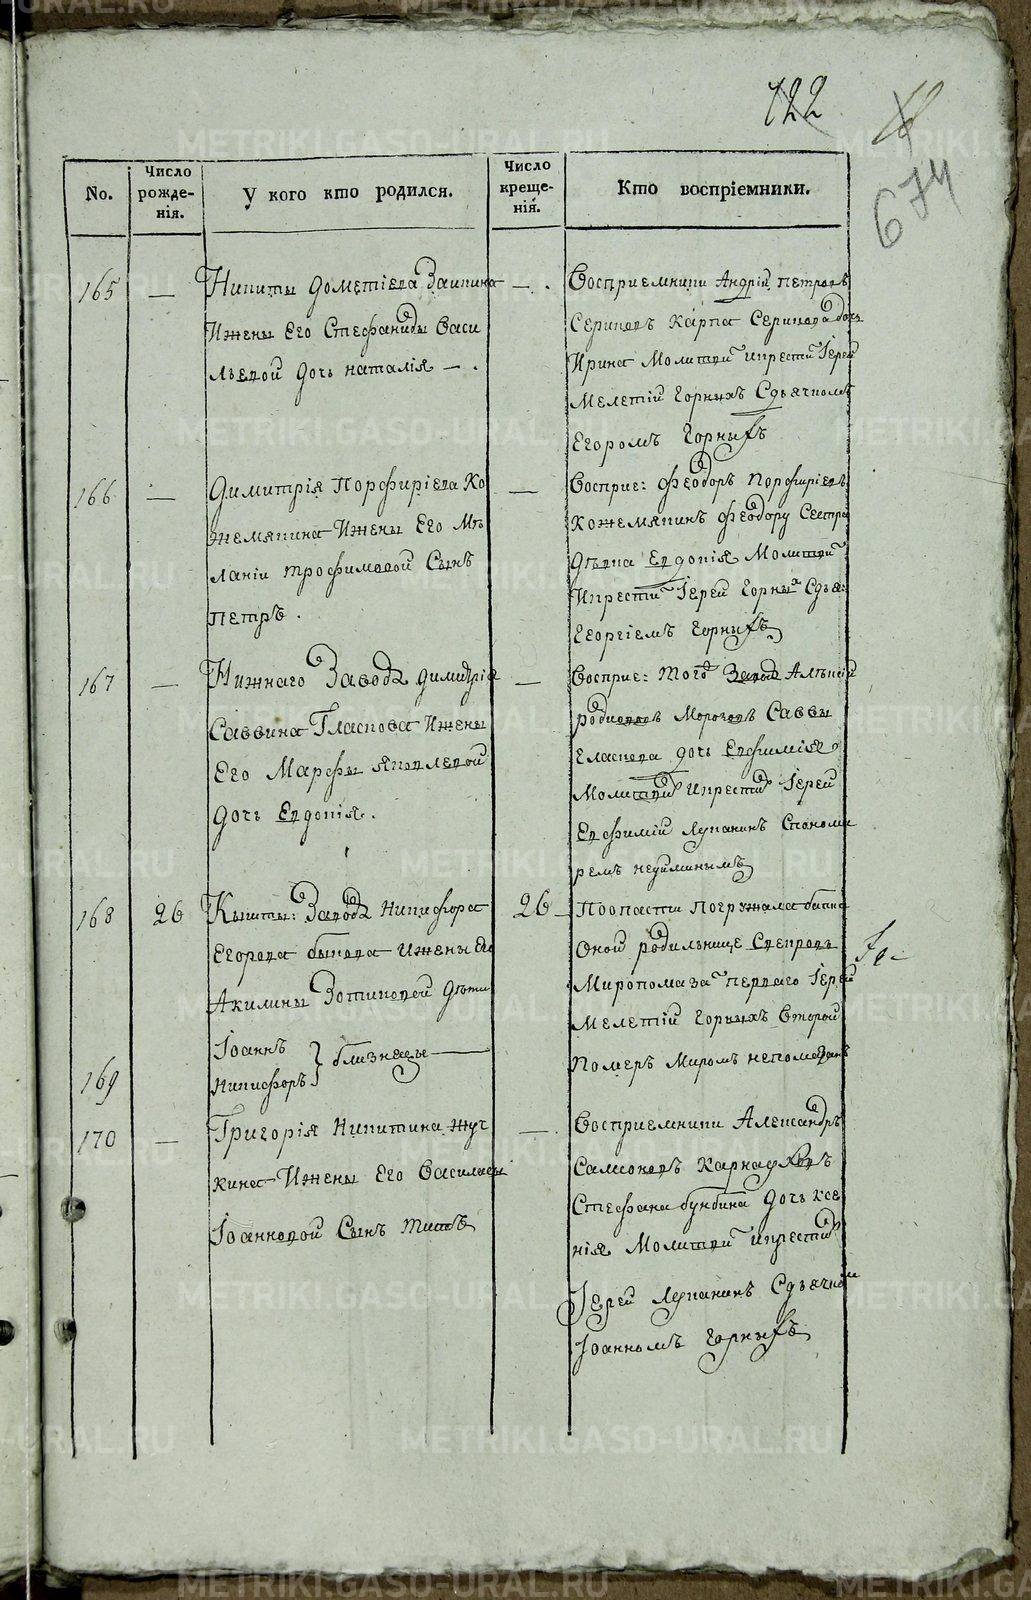 122
674
No.
Число рожде-нія.
У кого кто родился.
Число креще-нія.
Кто воспріемники.
165 — Никиты Дометіева Заикина — .
Ижены Его Стефаниды Васи
льевой дочь наталія — .
Восприемники Андрій петровъ
Сериковъ Карпа Серикова дочь
Ирина Молитви икрести Іерей
Мелетій Горныхъ Сдьячкомъ
Егоромъ Горныхъ
166 — Димитрія Порфиріева Ко —
жемякина Ижены Его Ме
ланіи трофимовой Сынъ
петръ .
Восприе: Феодоръ Порфиріевъ
Кожемякинъ Феодору Сестра
дѣвка Евдокія Молитви
Икрести Іерей Горны Сдья:
Георгіемъ Горныхъ
167 — Нижнаго Завода димитрія —
Саввина Гласкова Ижены
Его Марфы Яковлевой
дочь Евдокія .
Восприе: того Завод Алѣксій
родионовъ Морозовъ Саввы
Гласкова дочь Евфимія
Молитви икрести Іерей
Евфимій Лукания Спонома
ремъ
168 26 Кышты: Завода Никифора 26 —
Егорова быкова Ижены Его
Акилины Зотиковой дѣти
Іоаннъ
169 Никифоръ } близнецы —
Поопасти погружала бабка
Оной родильнице Свекровь
Миропомаза перваго Іерей
Мелетій Горныхъ Второй
Померъ Миромъ непомазанъ
170 — Григорія Никитина жуч —
кина Ижены Его Василисы
Іоанновой Сынъ титъ
Восприемники Александръ
Самсоновъ Карнауховъ
Стефана бунбина дочь ксе
нія Молитви икрести
Іерей Луканинъ Сдьячко
Іоанномъ Горныхъ
METRIKI.GASO-URAL.RU